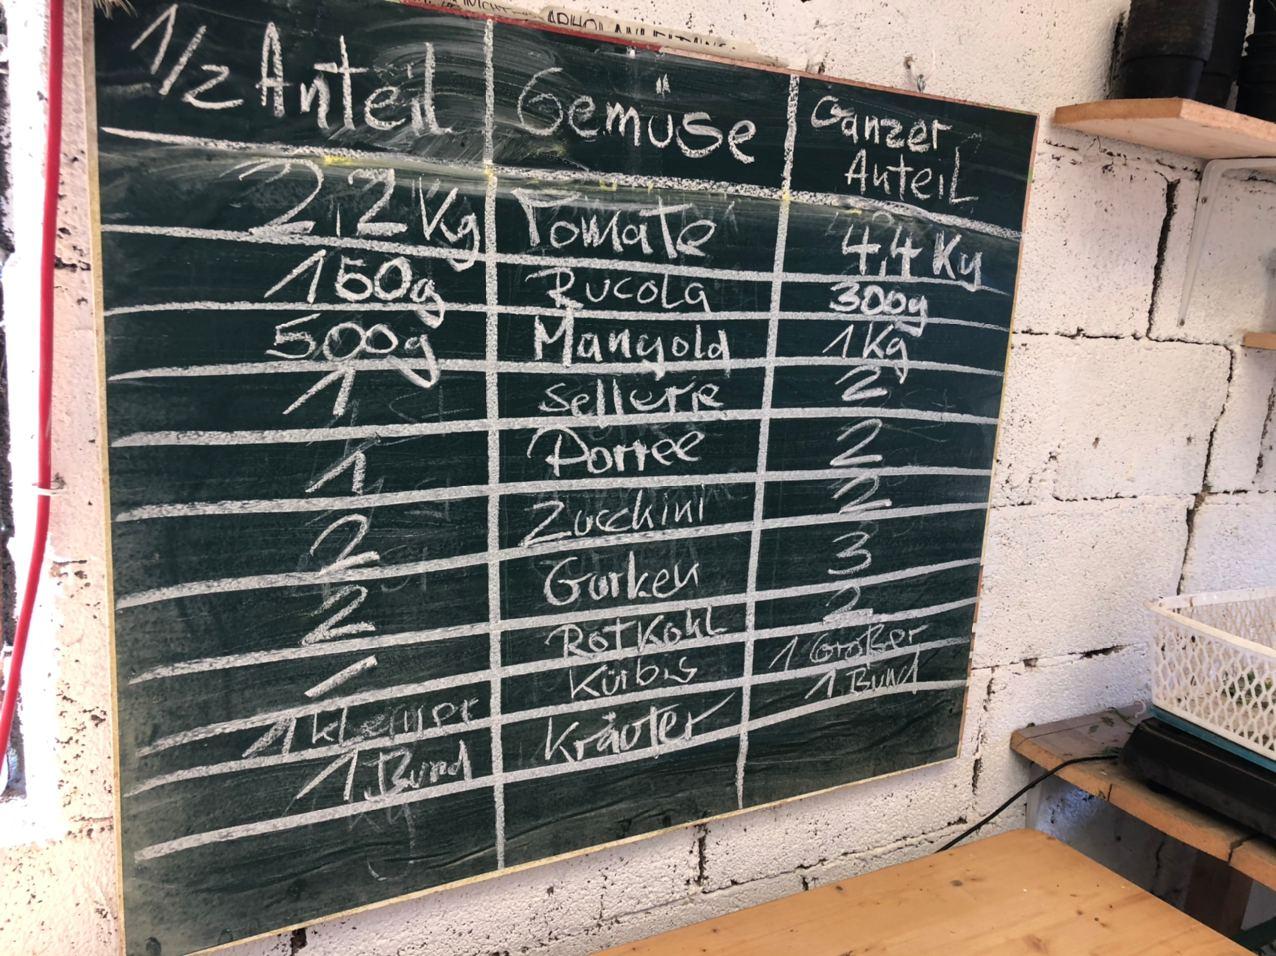 1/2 Anteil Gemüse Ganzer Anteil
2,2 Kg Tomate 4,4 Kg
150g Rucola 300g
500g Mangold 1 Kg
1 Sellerie 2
1 Porree 2
2 Zucchini 2
2 Gurken 3
1 Rotkohl 2
1 kleiner Kürbis 1 Großer
1 Bund Kräuter 1 Bund